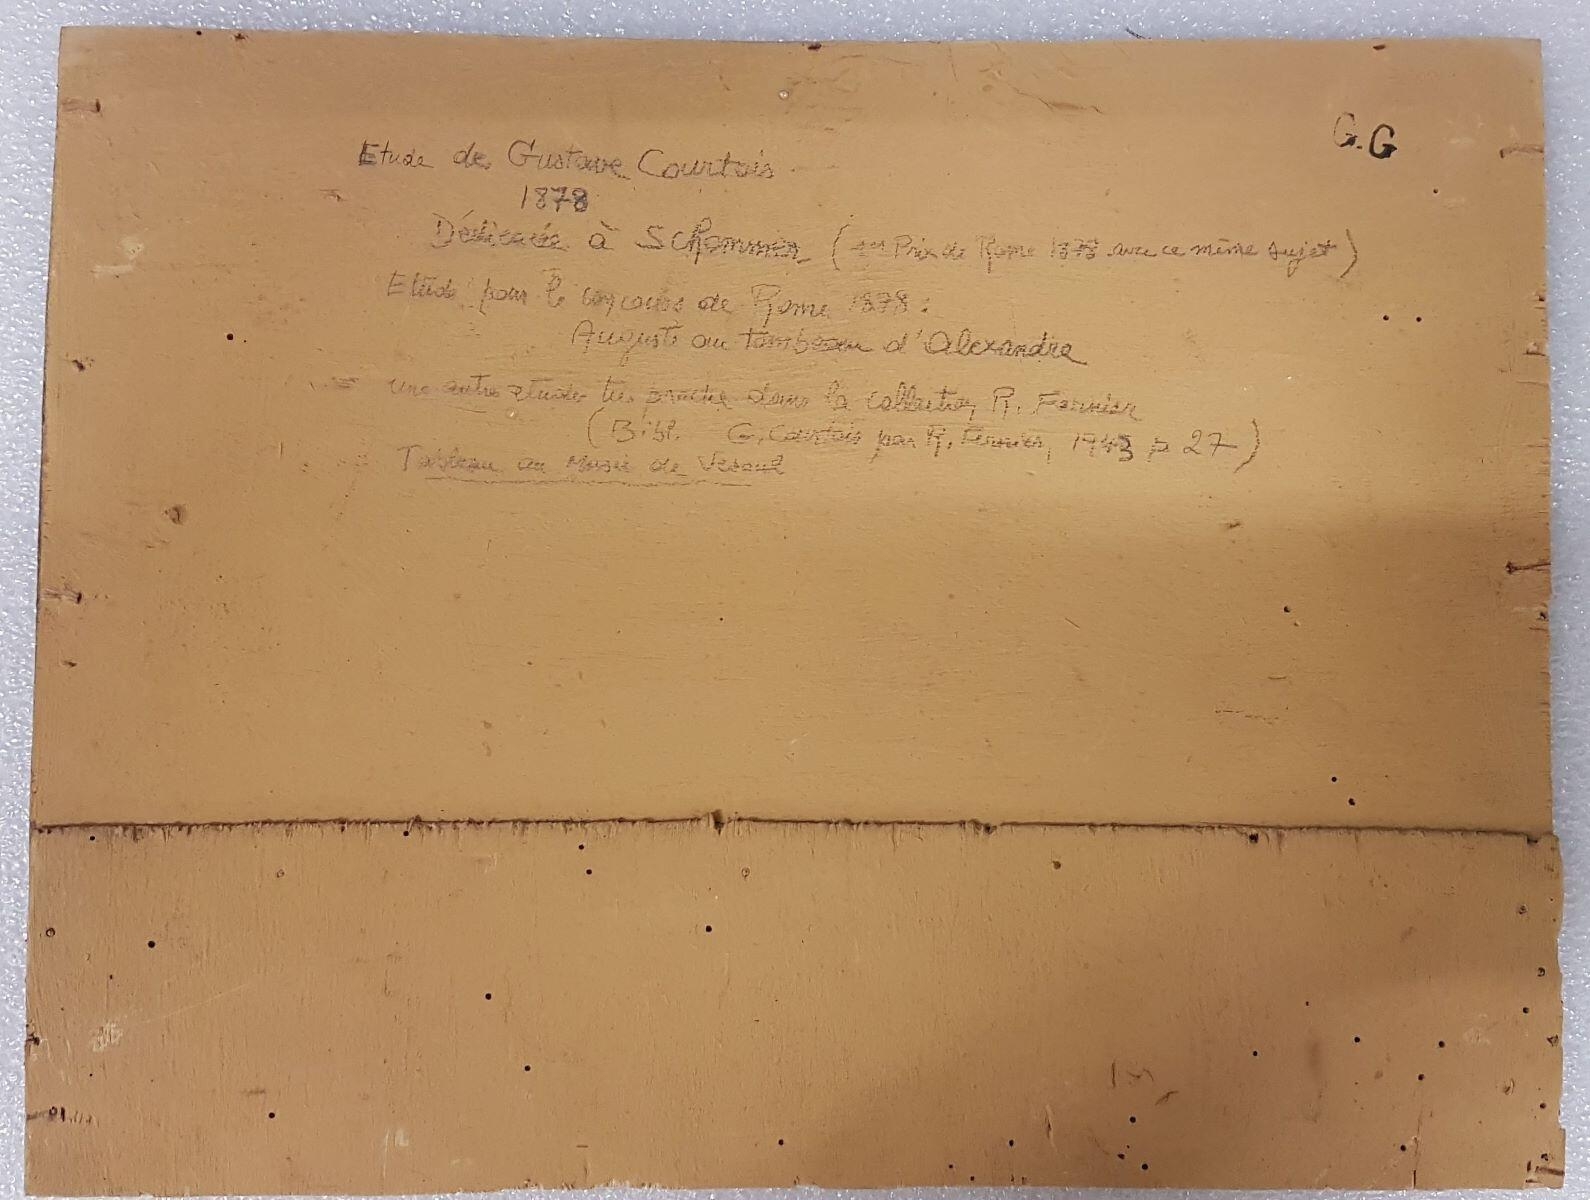 G.G
Etude de Gustave Courtois
1878
Dédicacée à Schommer (1er Prix de Rome 1878 avec ce même sujet)
Etude pour le concours de Rome 1878 :
Auguste au tombeau d'Alexandre
une autre etude très proche dans la collection R. Fernier
(Bibl. G. Courtois par R. Fernier, 1943 p 27)
Tableau au Musée de Vesoul